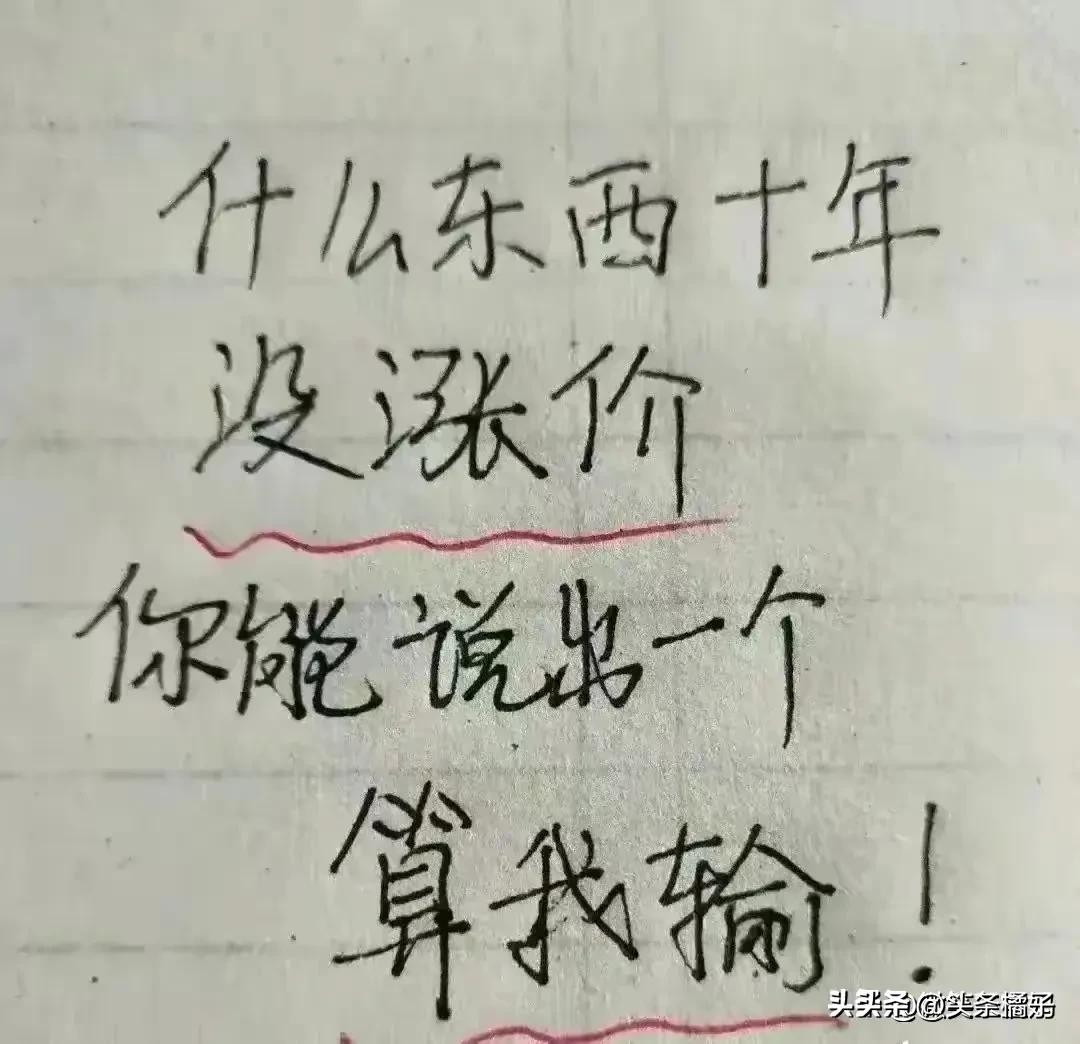 什么东西十年
没涨价
你能说出一个
算我输！
头条 @笑条橘子